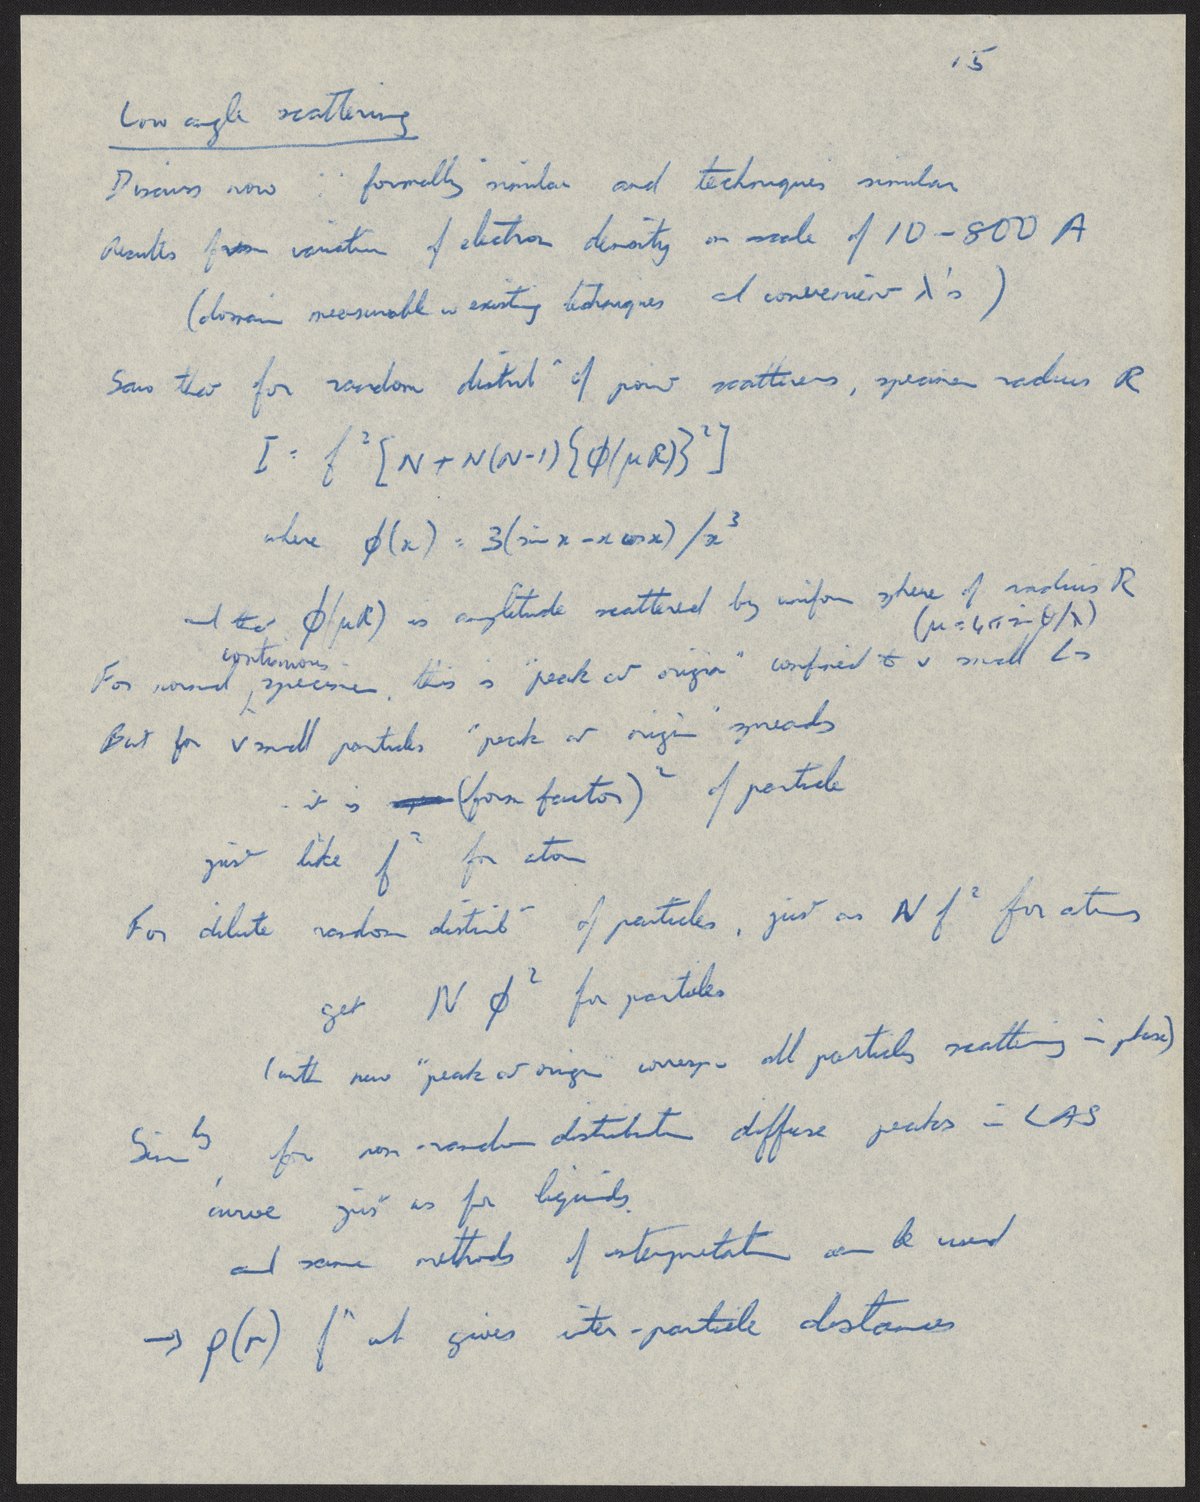 15
Low angle scattering
Discuss now ∵ formally similar and techniques similar
Results from variation of electron density on scale of 10 – 800 A
(domain measurable w existing techniques at convenient λ's)
Saw that for random distribⁿ of point scatterers, specimen radius R
I = f² [N + N(N-1) {φ(μR)}²]
where φ(x) = 3(sin x – x cos x) / x³
and φ(μR) is amplitude scattered by uniform sphere of radius R
(μ = 4π sin θ/λ)
For normal continuous specimen, this is "peak at origin" confined to v small ∠s
But for v small particles "peak at origin" spreads
- it is (form factor)² of particle
just like f² for atom
For dilute random distribⁿ of particles, just as N f² for atoms
get N φ² for particles
(with new "peak at origin" corresp. all particles scattering in phase)
Simˡʸ, for non-random distribution diffuse peaks in LAS
curve just as for liquids
and same methods of interpretation can be used
→ ρ(r) fⁿ wh gives inter-particle distances